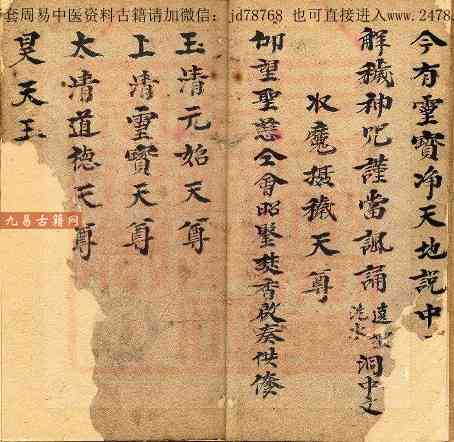 套周易中医资料古籍请加微信：jd78768 也可直接进入www.2478.
今有靈寳净天地説中
解穢神咒謹當諷誦 洞中
収魔攝穢天尊
仰望聖慈仝會昭鑒焚香啟奏供偹
玉清元始天尊
上清靈寳天尊
太清道德天尊
昊天玉
九易古籍网